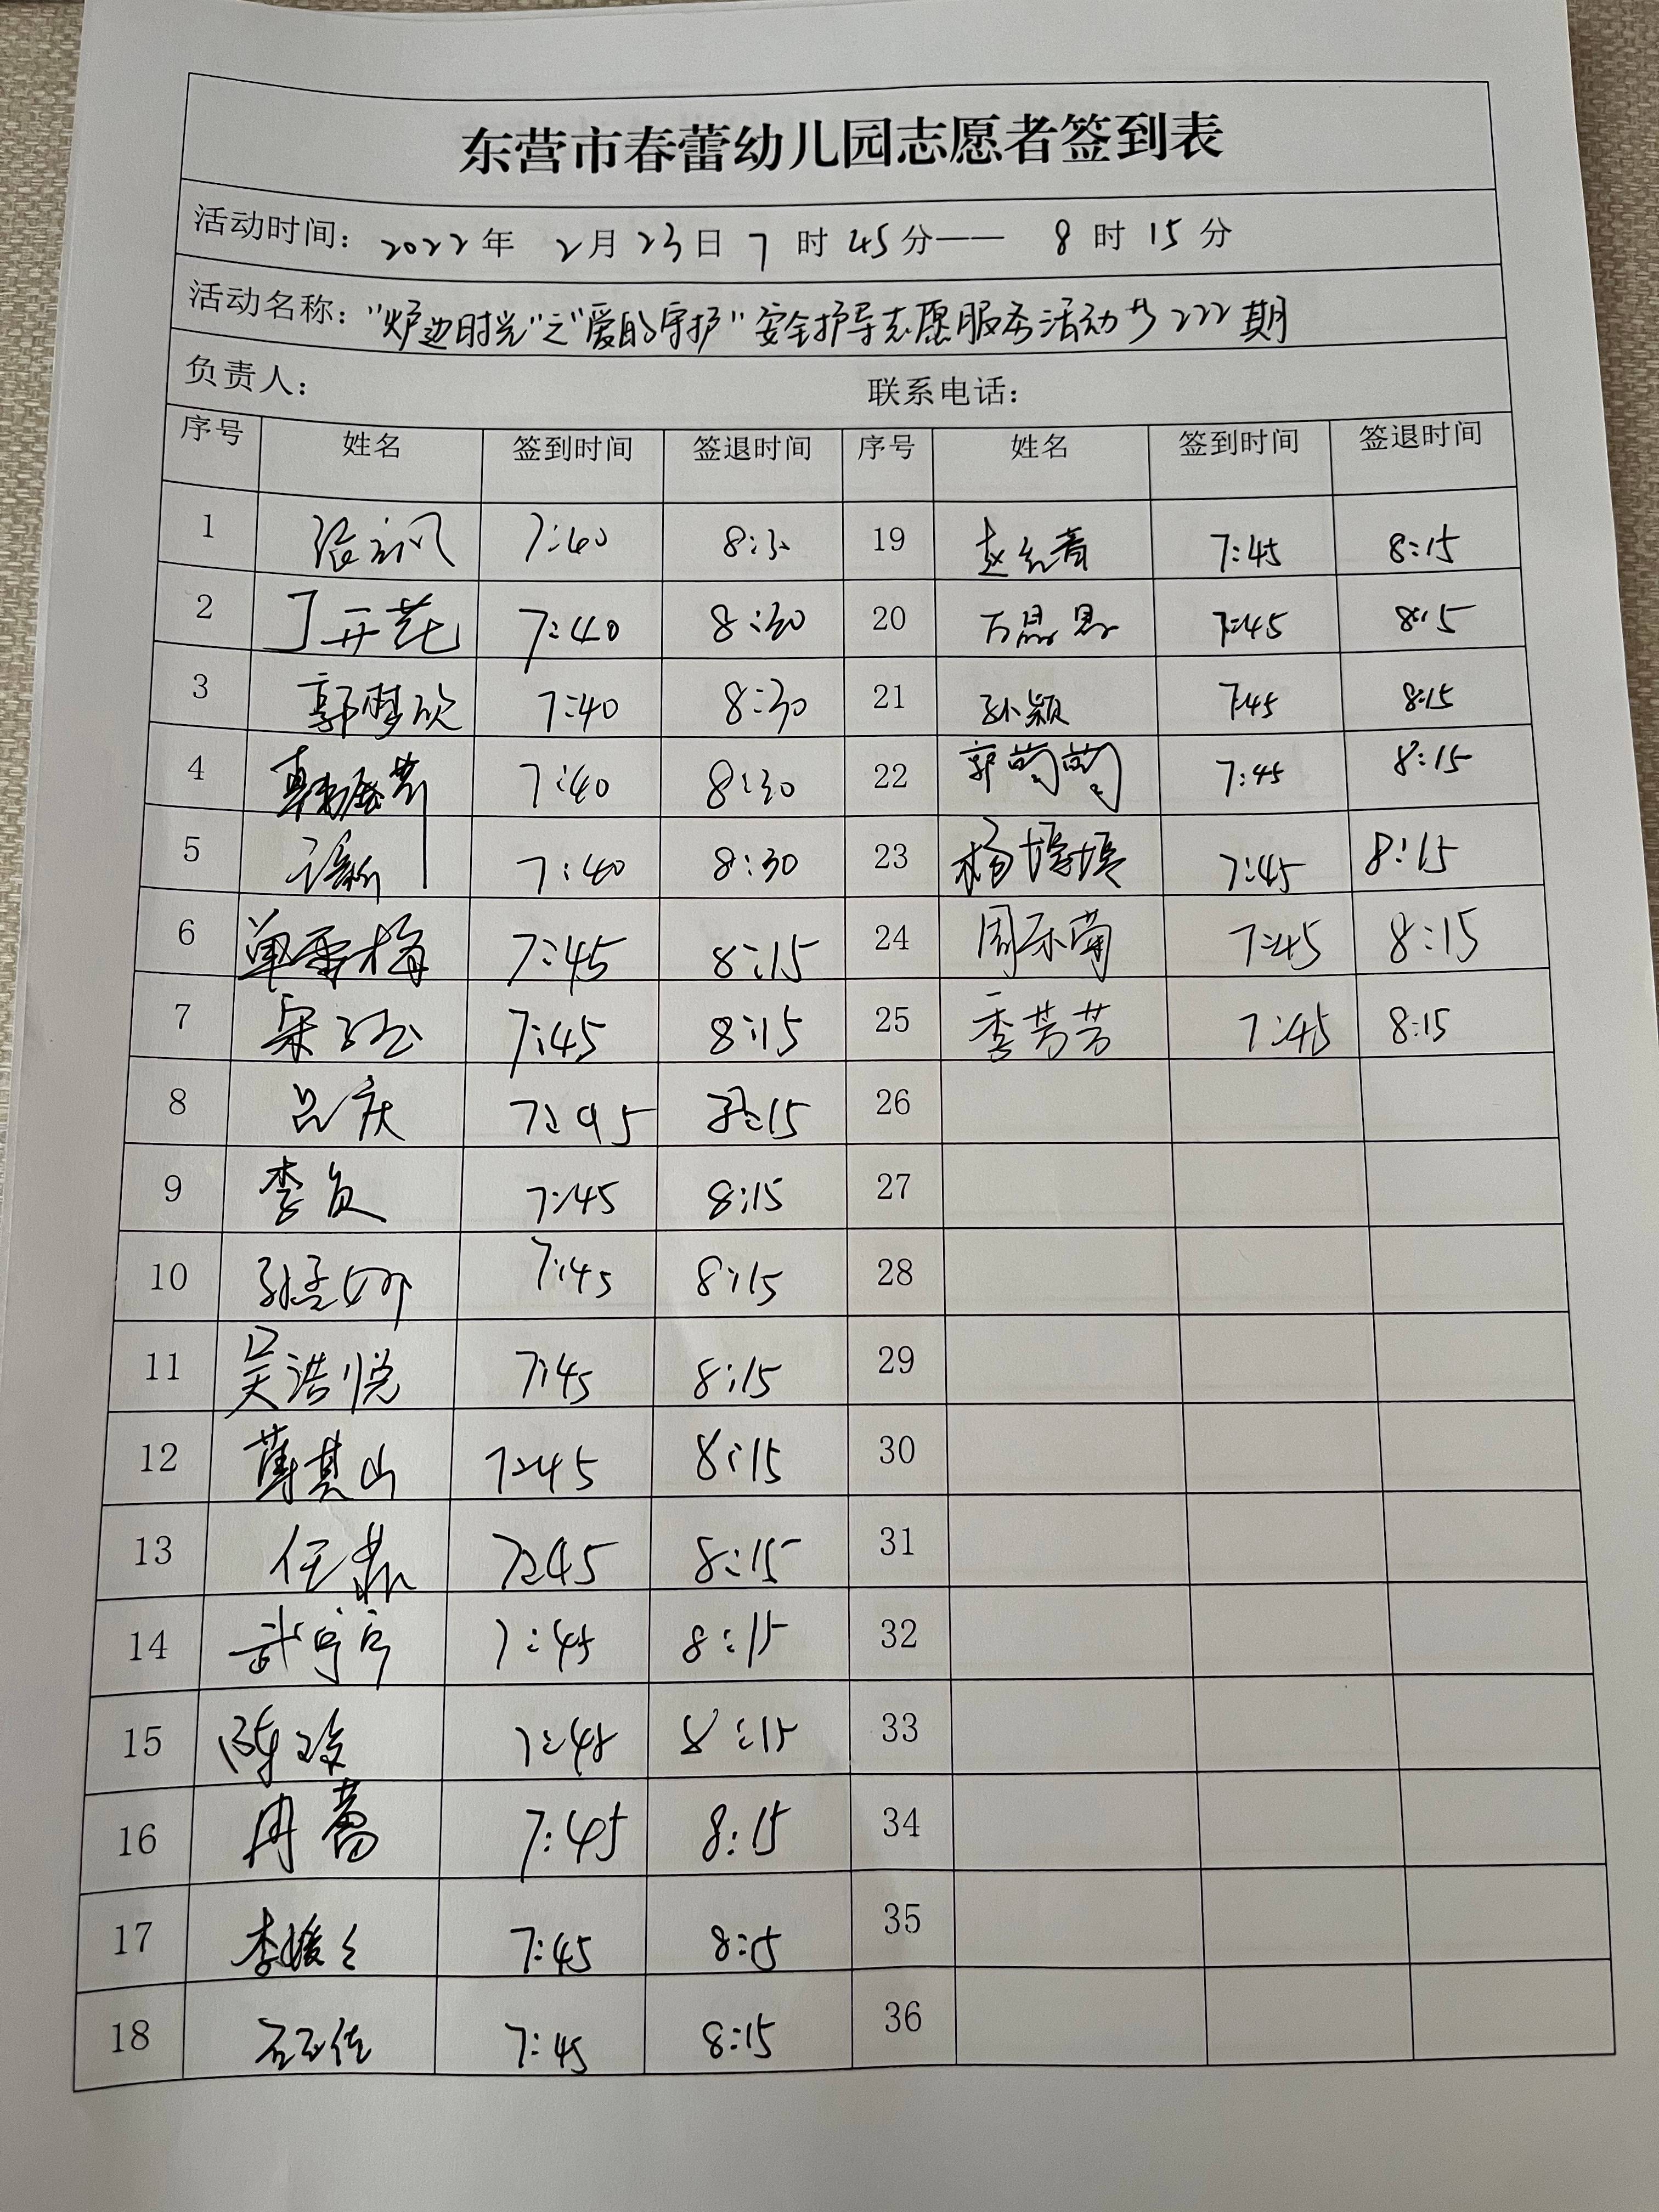 东营市春蕾幼儿园志愿者签到表
活动时间：2022年 2月23日 7 时 45分—— 8 时 15 分
活动名称："炉边时光"之"爱的守护"安全护导志愿服务活动第222期
负责人： 联系电话：
序号 姓名 签到时间 签退时间 序号 姓名 签到时间 签退时间
1 7:40 8:30 19 7:45 8:15
2 丁开花 7:40 8:30 20 万恩恩 7:45 8:15
3 郭梦欣 7:40 8:30 21 孙颖 7:45 8:15
4 7:40 8:30 22 郭茵茵 7:45 8:15
5 7:40 8:30 23 杨培培 7:45 8:15
6 单雪梅 7:45 8:15 24 周乐菊 7:45 8:15
7 7:45 8:15 25 季芳芳 7:45 8:15
8 吕庆 7:45 8:15 26
9 李贞 7:45 8:15 27
10 孙孟娜 7:45 8:15 28
11 吴浩悦 7:45 8:15 29
12 薄其山 7:45 8:15 30
13 任燕 7:45 8:15 31
14 武宁宁 7:45 8:15 32
15 陈玫 7:45 8:15 33
16 冉蕾 7:45 8:15 34
17 李媛媛 7:45 8:15 35
18 石玉佳 7:45 8:15 36